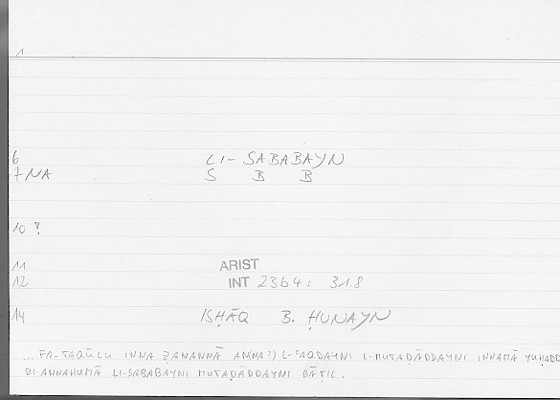 1
6 LI- SABABAYN
7 NA S B B
10 ?
11 ARIST
12 INT 23b4: 31.8
14 ISḤĀQ B. ḤUNAYN
... FA-TAQŪLU INNA ẒANANNĀ ANNA?) L-ʿAQDAYNI L-MUTAḌĀDDAYNI INNAMĀ YUḤADD
BI-ANNAHUMĀ LI-SABABAYNI MUTAḌĀDDAYNI BĀṬIL.